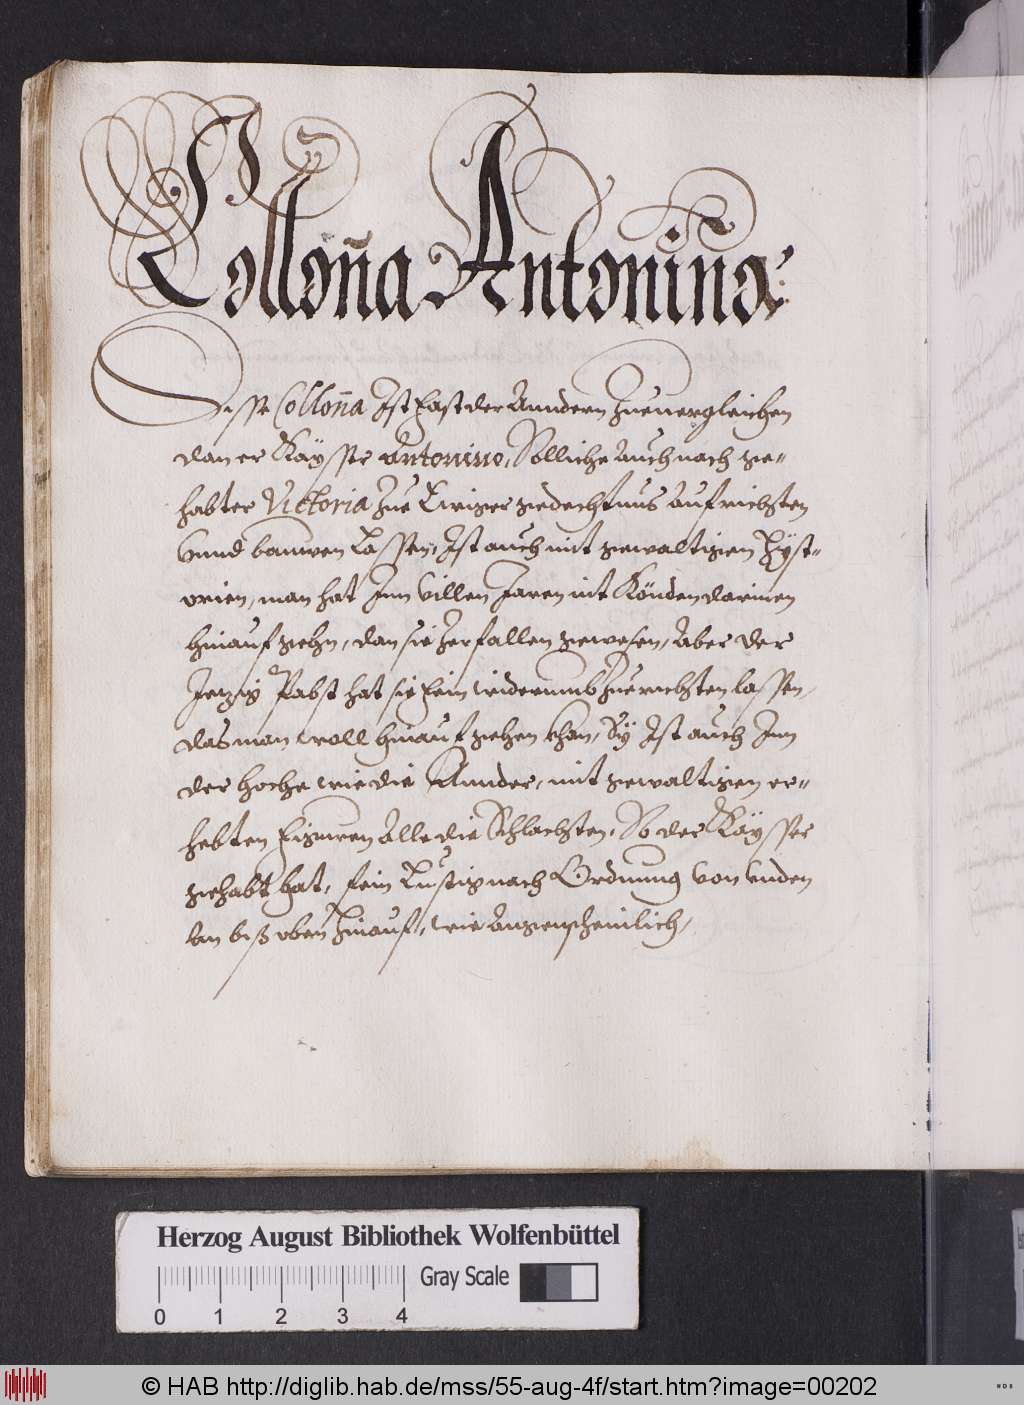 Colloña Antonina:
Disse Colloña Ist Fast der Anndern Zuuergleichen
dan er Kaÿsser Antonino, Solliche Auch nach ge-
habter Victoria Zue Ewiger gedechtnus Aufrichten
Vnnd bauwen Lassen, Ist auch mit gewaltigen Hÿst-
orien, man hat Inn villen Jaren nit Könden darinen
hinauf gehn, dan sie Zerfallen gewesen, Aber der
Jezig Pabst hat sie Fein widerumb Zuerichten lassen,
das man woll hinauf gehen khan, Sÿ Ist auch Inn
der hoche wie die Annder, mit gewaltigen er-
hebten Figuren Alle die Schlachten, So der Kaÿsser
gehabt hat, fein Lustig nach Ordnung von vnden
an biß oben hinauf, wie Augenscheinlich,
Herzog August Bibliothek Wolfenbüttel
Gray Scale
0 1 2 3 4
© HAB http://diglib.hab.de/mss/55-aug-4f/start.htm?image=00202